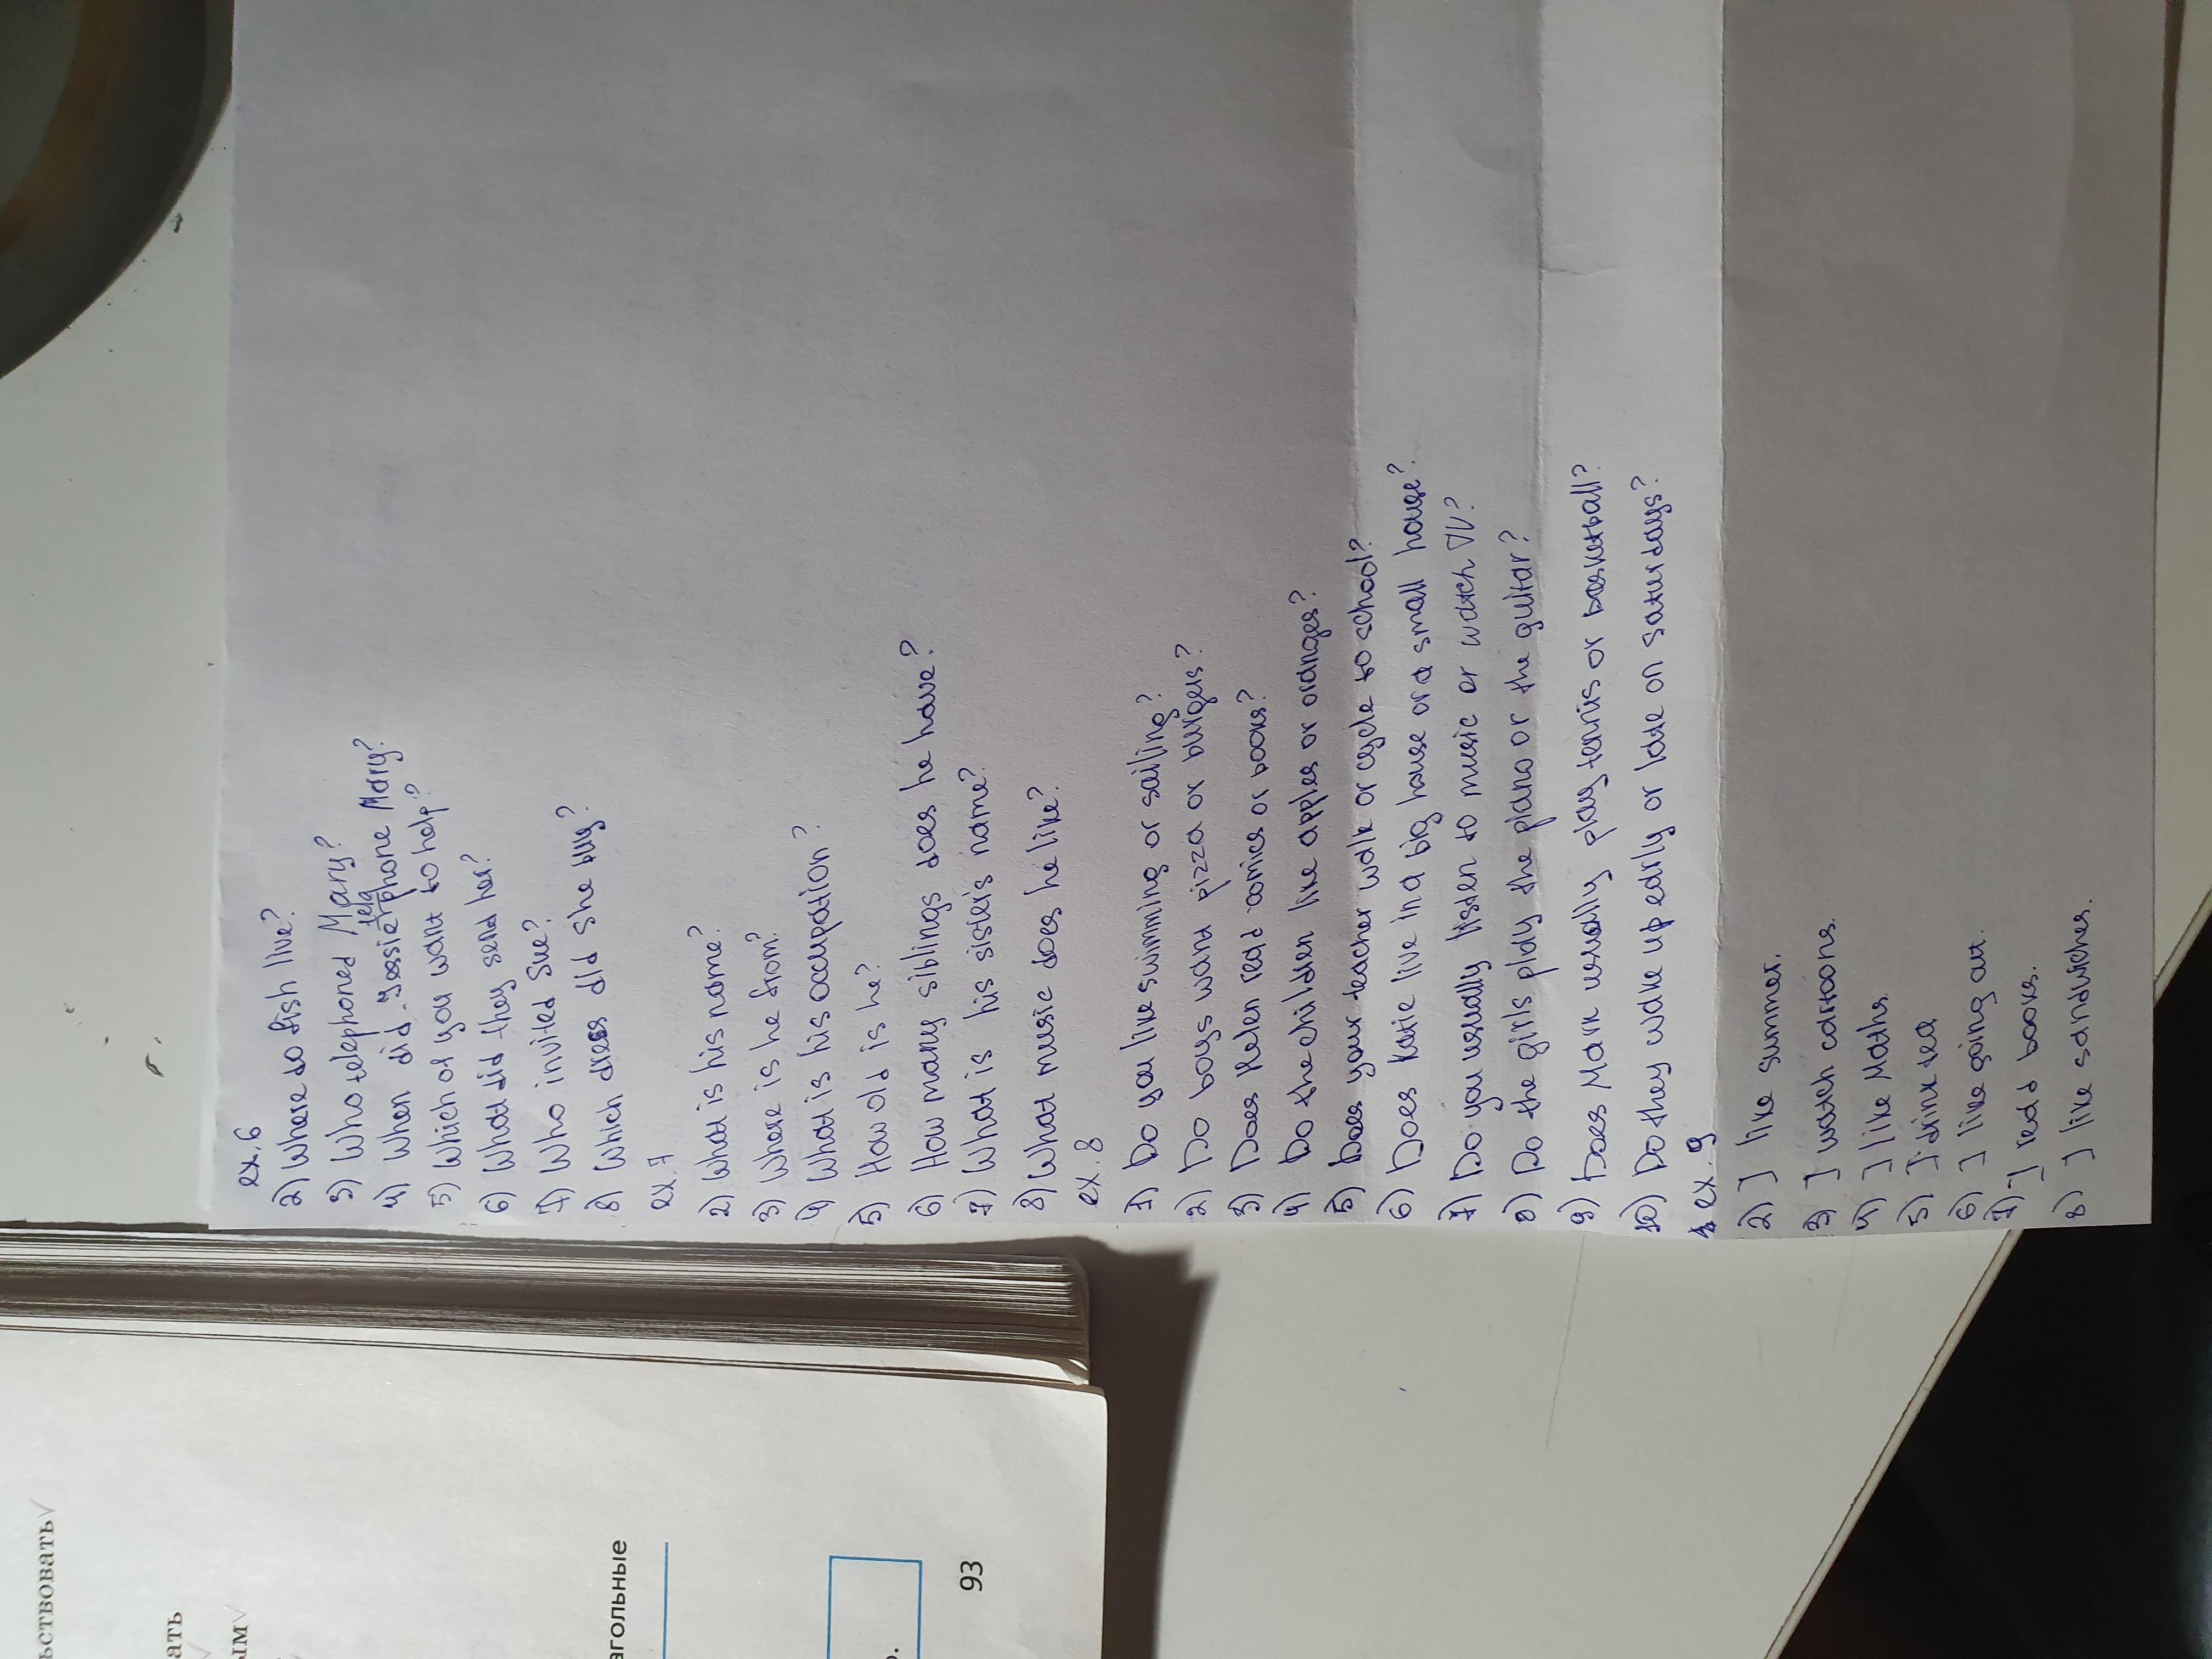 ex. 6
2) Where do fish live?
3) Who telephoned Mary?
4) When did Jessie telephone Mary?
5) Which of you want to help?
6) What did they send her?
7) Who invited Sue?
8) Which dress did she buy?
ex. 7
2) What is his name?
3) Where is he from?
4) What is his occupation?
5) How old is he?
6) How many siblings does he have?
7) What is his sister's name?
8) What music does he like?
ex. 8
1) Do you like swimming or sailing?
2) Do boys want pizza or burgers?
3) Does Helen read comics or books?
4) Do the children like apples or oranges?
5) Does your teacher walk or cycle to school?
6) Does Katie live in a big house or a small house?
7) Do you usually listen to music or watch TV?
8) Do the girls play the piano or the guitar?
9) Does Mark usually play tennis or basketball?
10) Do they wake up early or late on saturdays?
ex. 9
2) I like summer.
3) I watch cartoons.
4) I like Maths
5) I drink tea
6) I like going out.
7) I read books.
8) I like sandwiches.
ьствовать
ать
ым
агольные
93